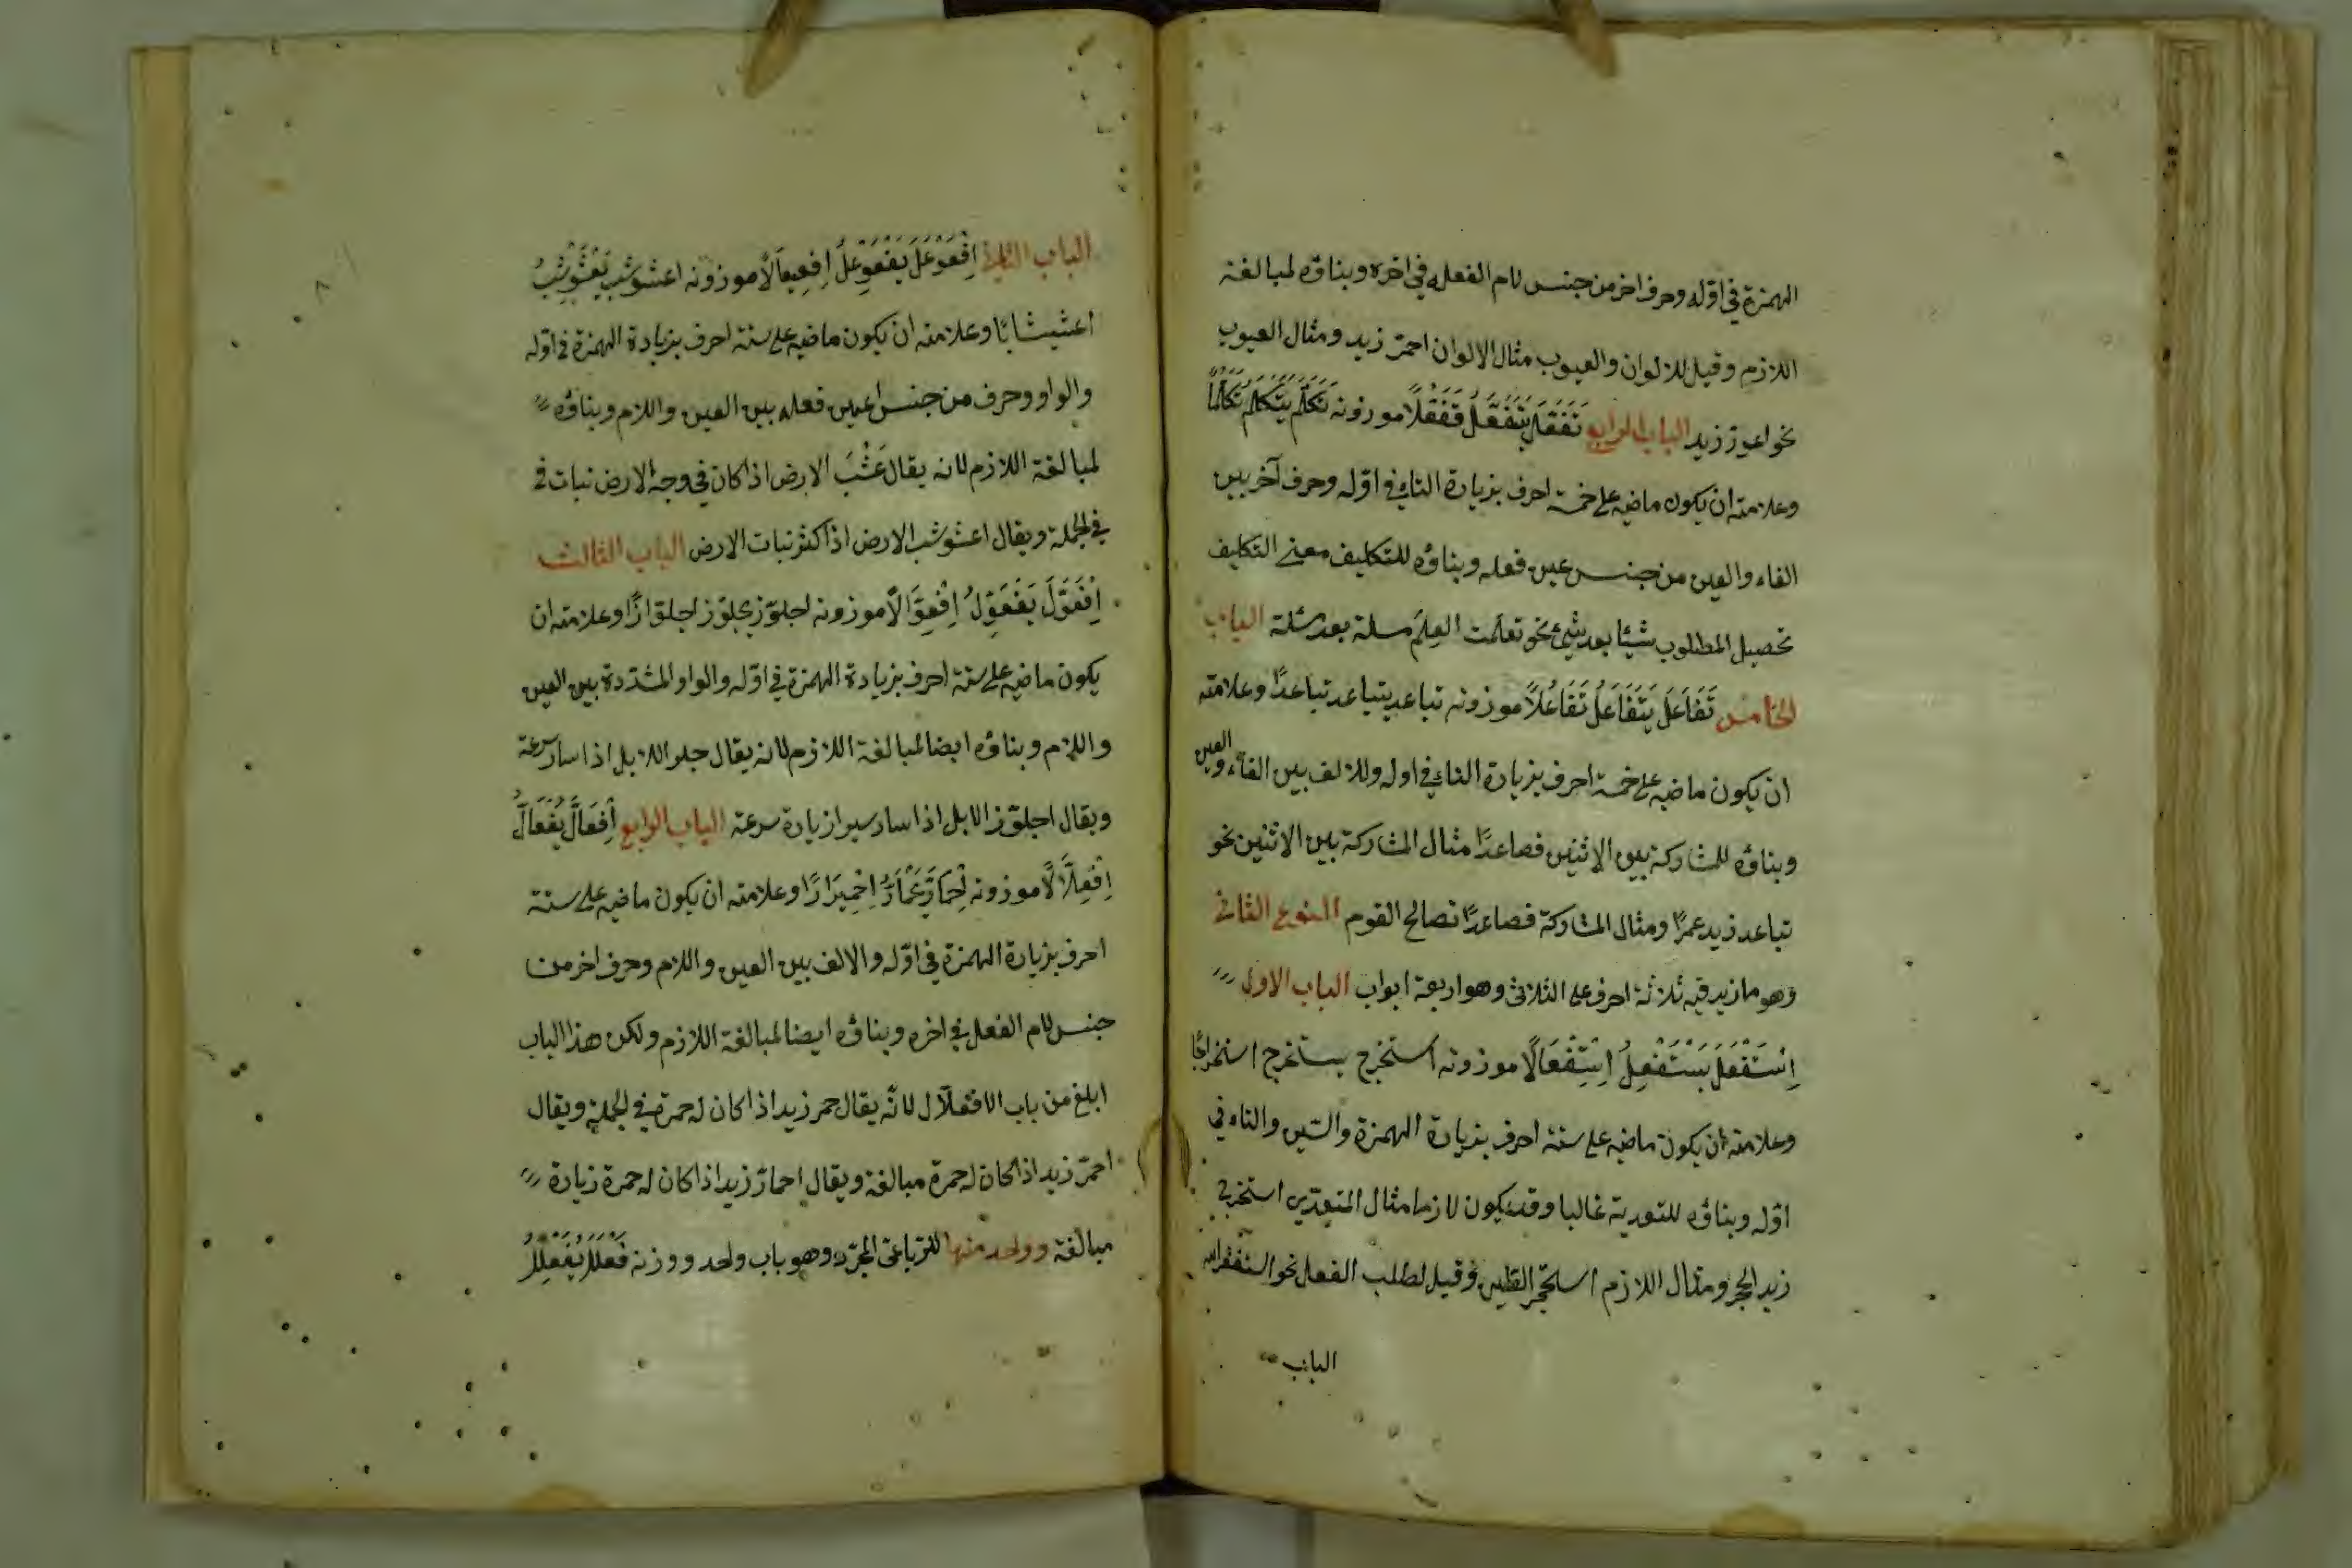 الهمزة في اوله وحرف اخر من جنس لام الفعله في اخره وبناؤه لمبالغة
اللازم وقيل للالوان والعيوب مثال الالوان احمرّ زيد ومثال العيوب
نحو اعورّ زيد الباب الرابع تَفَعَّلَ يَتَفَعَّلُ تَفَعُّلًا موزونه تَكَلَّمَ يَتَكَلَّمُ تَكَلُّمًا
وعلامته ان يكون ماضيه على خمسة احرف بزيادة التاء في اوّله وحرف آخر بين
الفاء والعين من جنس عين فعله وبناؤه للتكليف معنى التكليف
تحصيل المطلوب شيئا بعد شيئ نحو تعلمت العِلمَ مسلة بعد مسئلة الباب
الخامس تَفَاعَلَ يَتَفَاعَلُ تَفَاعُلًا موزونه تباعد يتباعد تباعدًا وعلامته
ان يكون ماضيه على خمسة احرف بزيادة التاء في اوله وللالف بين الفاء والعين
وبناؤه للمشاركة بين الاثنين فصاعدًا مثال المشاركة بين الاثنين نحو
تباعد زيد عمرًا ومثال المشاركة فصاعدًا تصالح القوم النوع الثانى
وهو ما زيد فيه ثلاثة احرف على الثلاثى وهو اربعة ابواب الباب الاول
اِسْتَفْعَلَ يَسْتَفْعِلُ اِسْتِفْعَالًا موزونه استخرج يستخرج استخراجًا
وعلامته ان يكون ماضيه على ستة احرف بزيادة الهمزة والسّين والتاء في
اوّله وبناؤه للتعدية غالبا وقد يكون لازما مثال المتعدّي استخرج
زيد الحجر ومثال اللازم استحجر الطين وقيل لطلب الفعل نحو استغفر الله
الباب
الباب اِفْعَوْعَلَ يَفْعَوْعِلُ اِفْعِيعَالًا موزونه اعشوشب يَعْشَوْشِبُ
اعشيشابًا وعلامته ان يكون ماضيه على ستة احرف بزيادة الهمزة في اوّله
والواو وحرف من جنس عين فعله بين العين واللام وبناؤه
لمبالغة اللازم لانه يقال عَشُبَ الارض اذ كان في وجه الارض نبات في
في الجملة ويقال اعشوشب الارض اذا كثر نبات الارض الباب الثالث
اِفْعَوَّلَ يَفْعَوِّلُ اِفْعِوَّالًا موزونه اجلوّز يجلوّز اجلوّازًا وعلامته ان
يكون ماضيه على ستة احرف بزيادة الهمزة في اوّله والواو المشدّدة بين العين
واللام وبناؤه ايضا لمبالغة اللازم لانه يقال جلز اللابل اذا سار سرعة
ويقال اجلوّز الابل اذا سار سيرا زيادة سرعة الباب الرابع اِفْعَالَّ يَفْعَالُّ
اِفْعِلَّالًا موزونه اِحْمَارَّ يَحْمَارُّ اِحْمِيرَارًا وعلامته ان يكون ماضيه على ستة
احرف بزيادة الهمزة في اوّله والالف بين العين واللام وحرف اخر من
جنس لام الفعل في اخره وبناؤه ايضا لمبالغة اللازم ولكن هذا الباب
ابلغ من باب الافعلّال لانّه يقال حمر زيد اذا كان له حمرة في الجملة ويقال
احمرّ زيد اذا كان له حمرة مبالغة ويقال احمارّ زيد اذا كان له حمرة زيادة
مبالغة وواحد منها للرّباعىّ المجرّد وهو باب واحد ووزنه فَعْلَلَ يُفَعْلِلُ